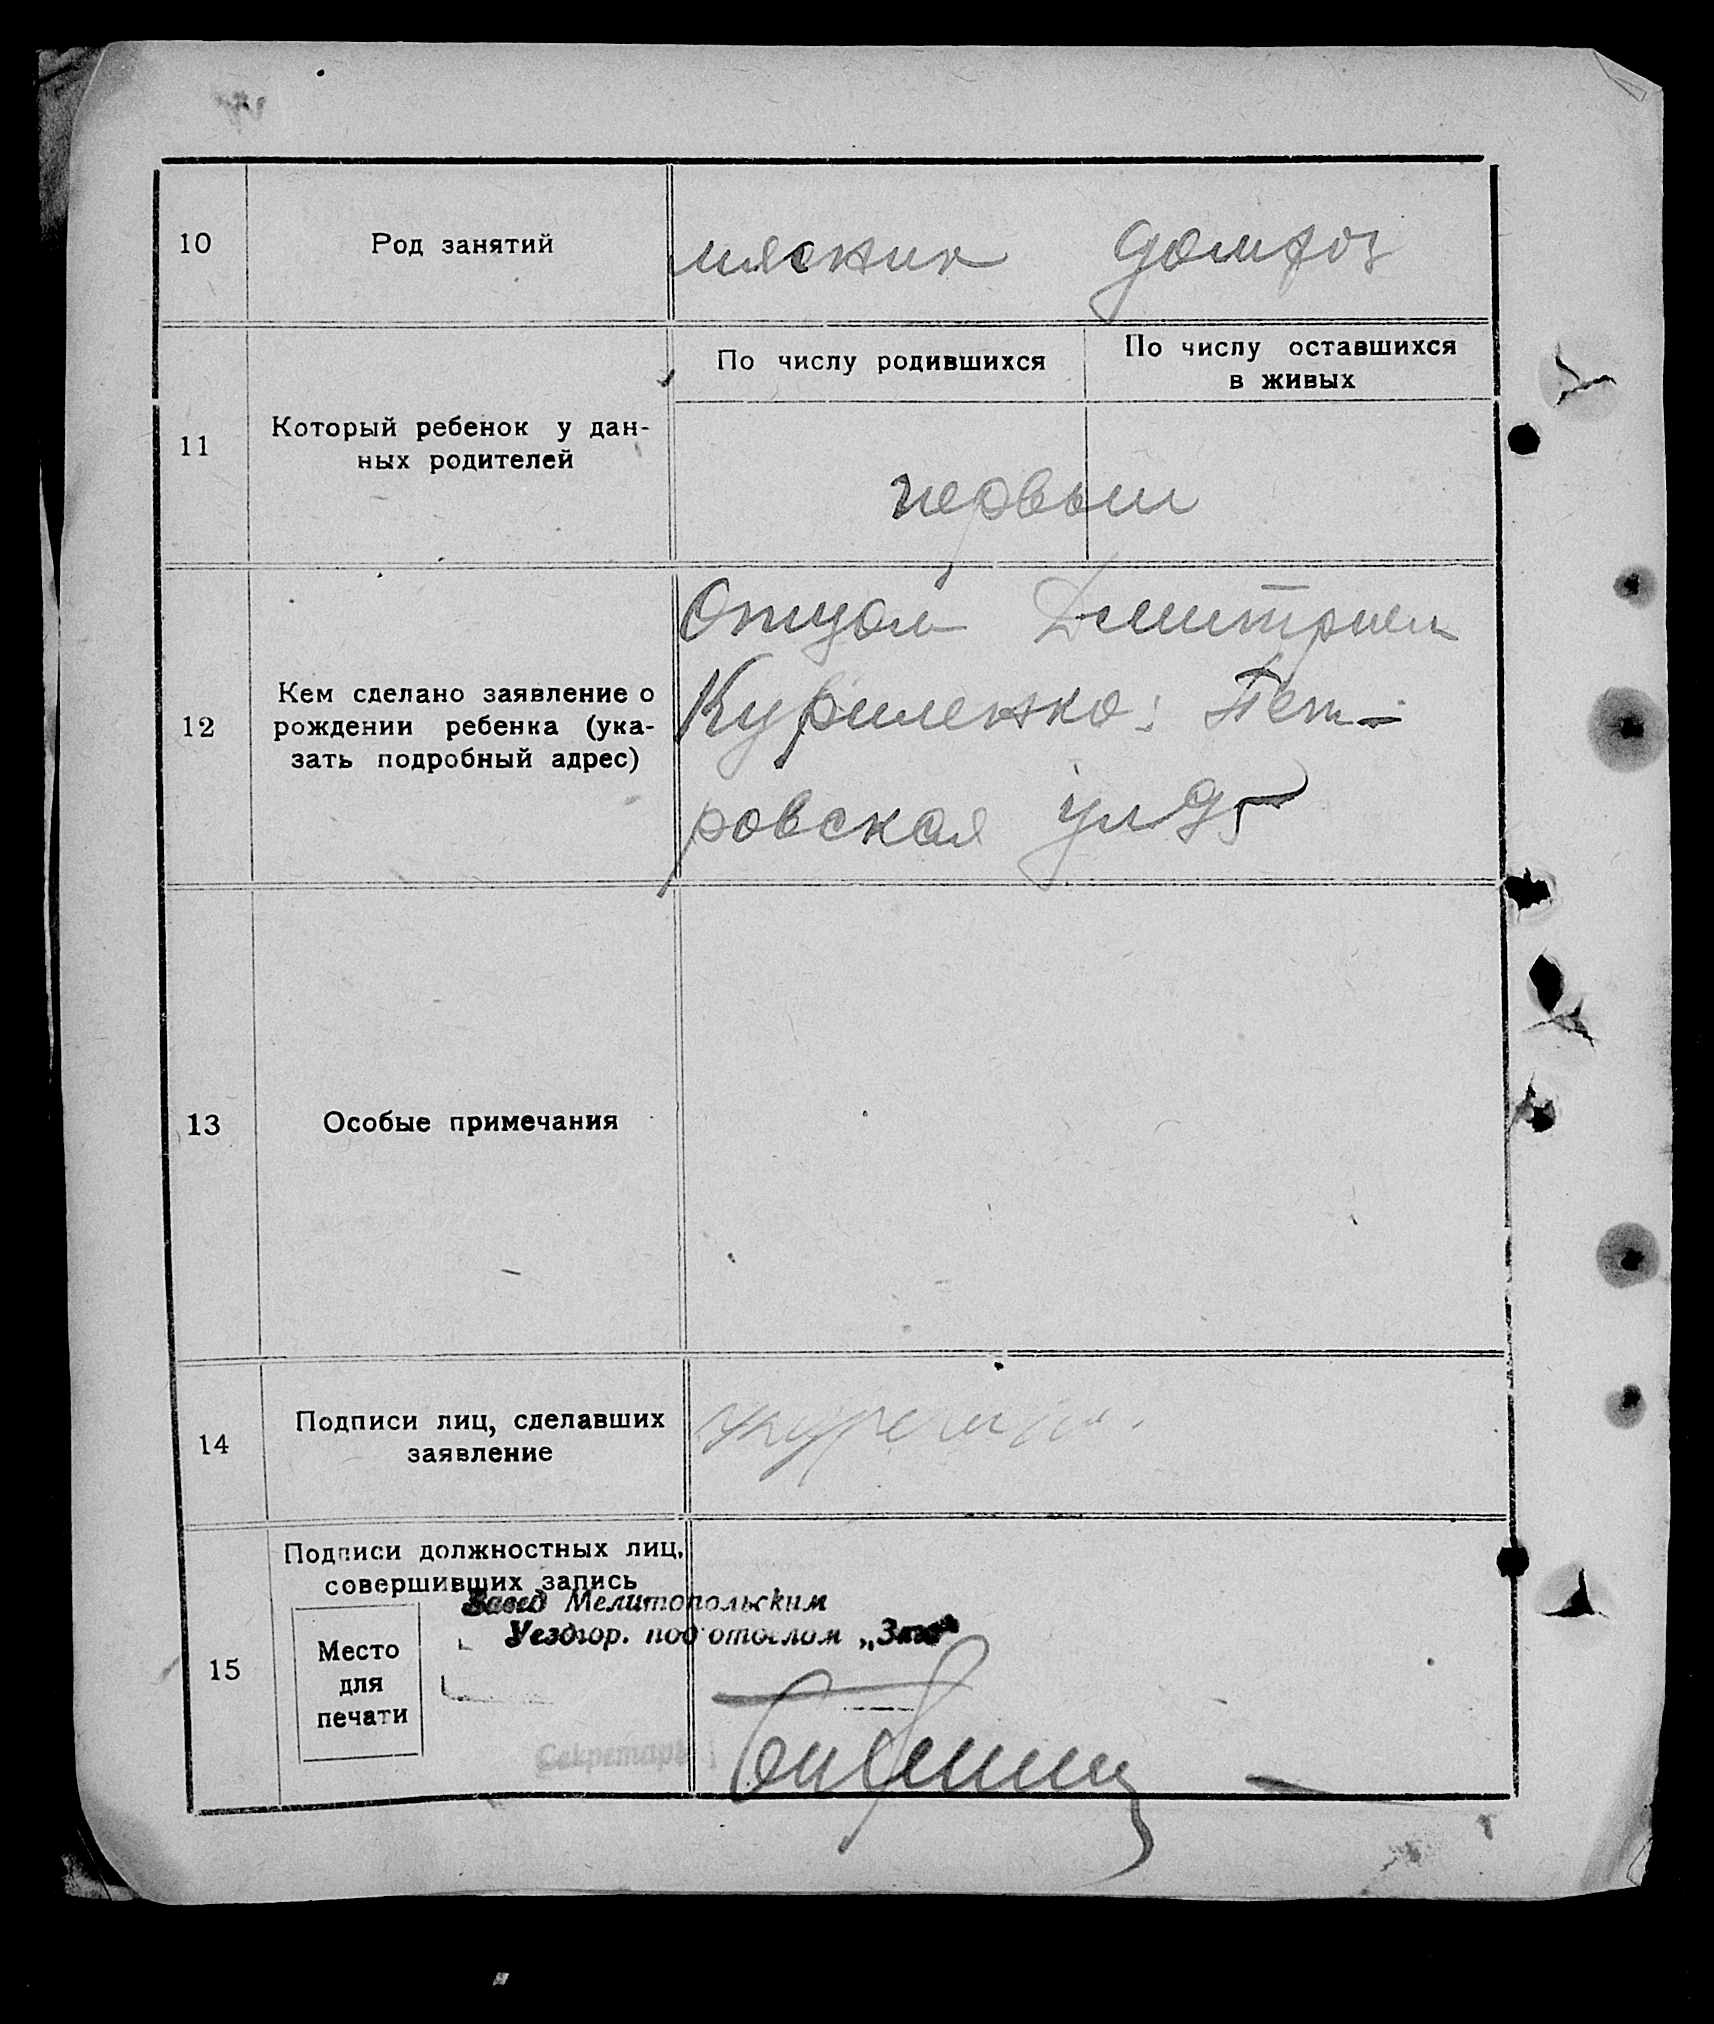 10 Род занятий мясник домхоз
По числу родившихся По числу оставшихся
в живых
11 Который ребенок у дан-
ных родителей
первый
Отцом Дмитрием
12 Кем сделано заявление о
рождении ребенка (ука-
зать подробный адрес)
Куриленко: Пет-
ровская ул 95
13 Особые примечания
14 Подписи лиц, сделавших
заявление
15 Подписи должностных лиц,
совершивших запись
Завед Мелитопольским
Уездгор. подотделом „Загс“
Место
для
печати
Секретарь